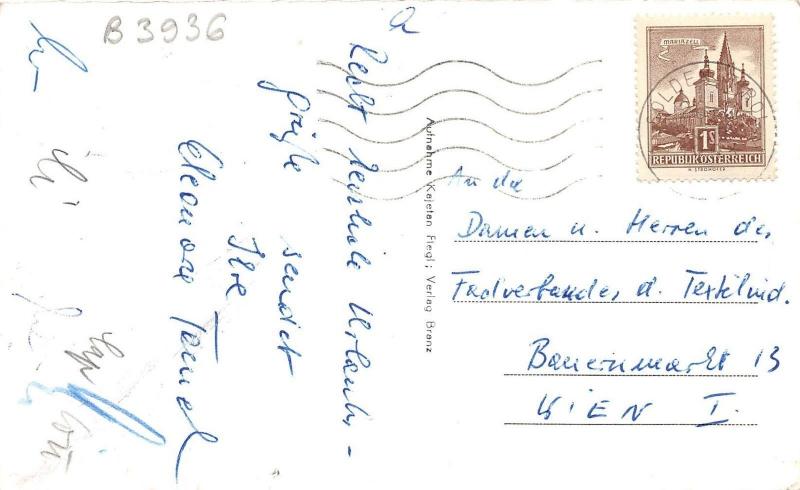 B 3936
Recht herzliche Urlaubs-
grüße sendet
Ihre
Eleonore
Aufnahme Kajetan Flegl; Verlag Branz
MARIAZELL
1S
REPUBLIK ÖSTERREICH
An die
Damen u. Herren des
Fachverbandes d. Textilind.
Bauernmarkt 13
WIEN I.